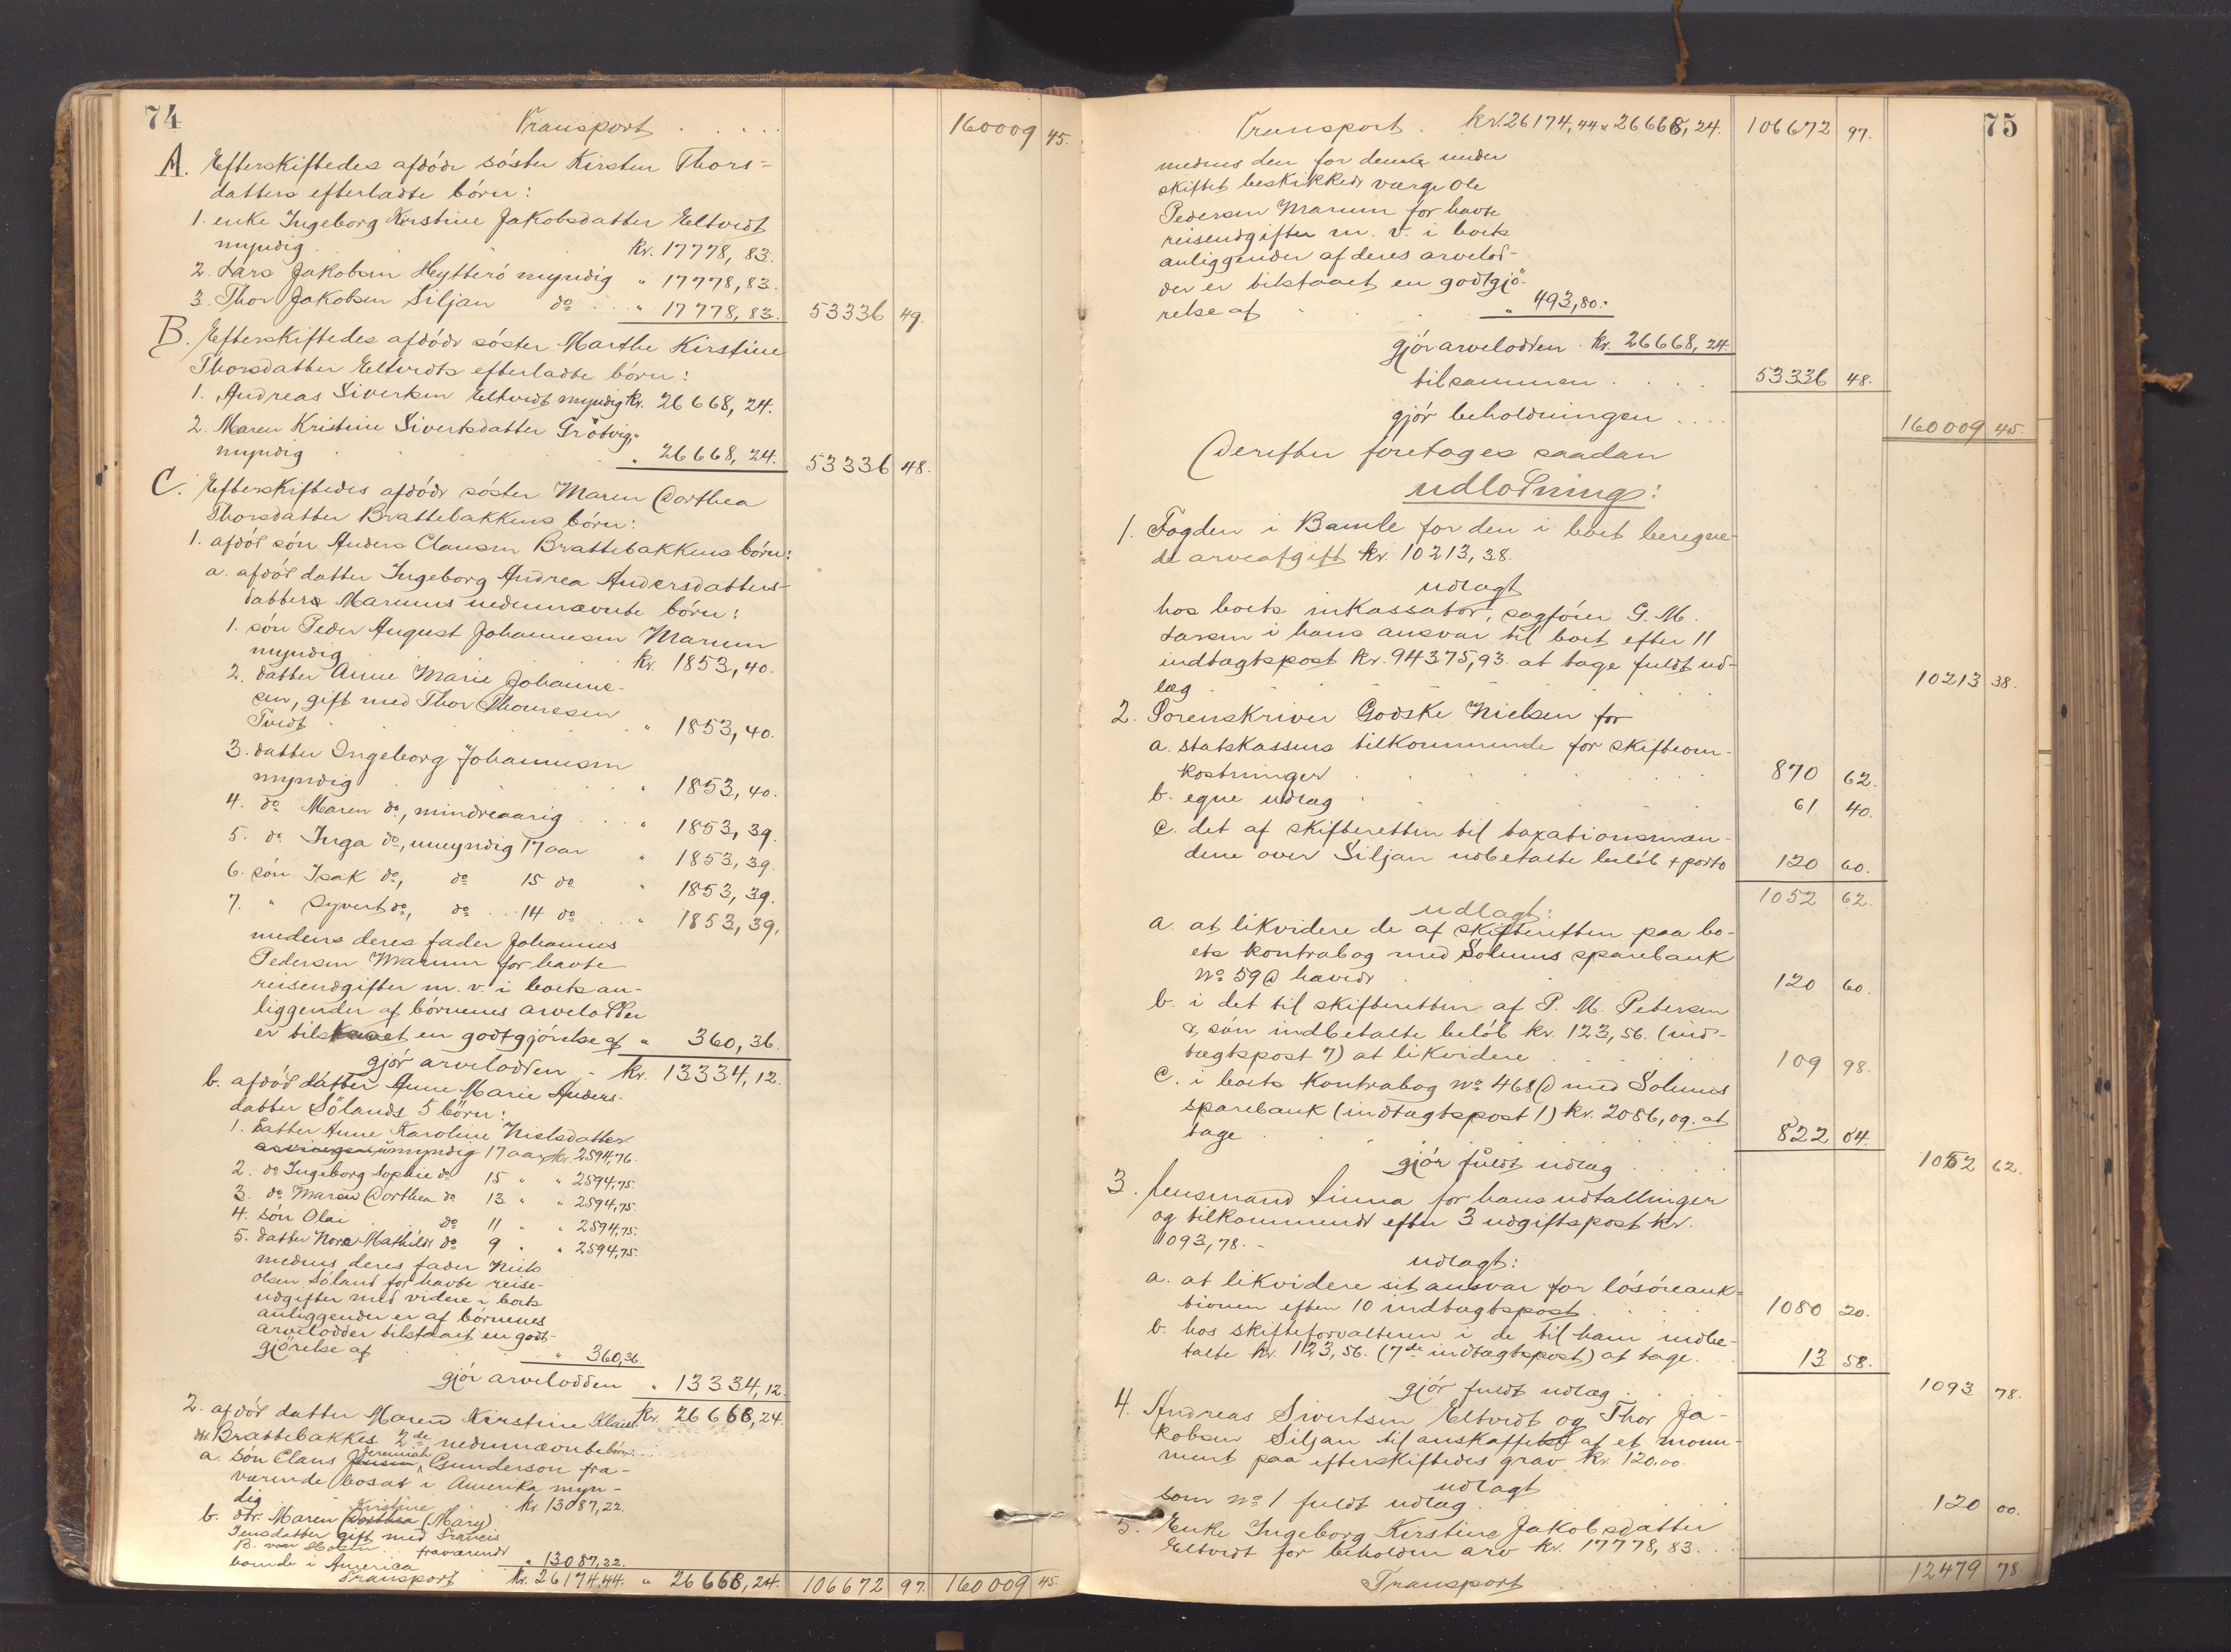 74
Transport . . . . . 160009 45.
A. Efterskiftedes afdöde söster Kirsten Thors-
datters efterladte börn:
1. enke Ingeborg Kirstine Jakobsdatter Eltvedt
myndig . . kr. 17778, 83.
2. Lars Jakobsen Hytterö myndig " 17778,83.
3. Thor Jakobsen Siljan do . . . " 17778,83. 53336 49.
B. Efterskiftedes afdöde söster Marthe Kirstine
Thorsdatter Eltvedts efterladte börn:
1. Andreas Sivertsen Eltvedt myndig kr. 26668, 24.
2. Maren Kristine Sivertsdatter Grötvig,
myndig . . . " 26668, 24. 53336 48.
C. Efterskiftedes afdöde söster Maren Dorthea
Thorsdatter Brattebakkens börn:
1. afdöd sön Anders Clausen Brattebakkens börn:
a. afdöd datter Ingeborg Andrea Andersdatters-
datters Marums nedennævnte börn:
1. sön Peder August Johannesen Marum
myndig . . kr. 1853,40.
2. datter Anne Marie Johanne-
sen, gift med Thor Thoresen
Tvedt . . . " 1853,40.
3. datter Ingeborg Johannesen
myndig . . . " 1853,40.
4. do Maren do, mindreaarig . . . " 1853,39.
5. do Inga do, umyndig 17 aar " 1853,39.
6. sön Isak do, do 15 do " 1853,39.
7. " Syvert do, do . . 14 do . . . " 1853,39.
medens deres fader Johannes
Pedersen Marum for havte
reiseudgifter m. v. i boets an-
liggender af börnenes arvelodder
er tilstaaet en godtgjörelse af " 360,36.
gjör arvelodden - kr. 13334,12.
b. afdöd datter Anne Marie Anders-
datter Sölands 5 börn:
1. datter Anne Karoline Nielsdatter
umyndig 17 aar kr. 2594,76.
2. do Ingeborg Sophie do 15 " " 2594,75.
3. do Maren Dorthea do 13 " " 2594,75.
4. sön Olai . . do 11 " " 2594,75.
5. datter Nora Mathilde do 9 " " 2594,75.
medens deres fader Niels
Olsen Söland for havte reise-
udgifter med videre i boets
anliggender er af börnenes
arvelodder tilstaaet en godt-
gjörelse af . . . " 360,36.
gjör arvelodden " 13334,12.
kr. 26668,24.
2. afdöd datter Maren Kirstine Klaus-
dtr. Brattebakkes 2de nedennævnte börn:
a. sön Claus Jensen Jeremiah Gunderson fra-
værende bosat i Amerika myn-
dig . . . kr. 13087,22.
b. dtr. Maren Dorthea Kristine (Mary)
Jensdatter gift med Francis
B. von Hosen fraværende
boende i America " 13087,22.
Transport kr. 26174,44. " 26668,24. 106672 97. 160009 45.
75
Transport . kr. 26174,44 " 26668,24. 106672 97.
medens den for denne under
skiftet beskikkede værge Ole
Pedersen Marum for havte
reiseudgifter m. v. i boets
anliggender af deres arvelod-
der er tilstaaet en godtgjö-
relse af . . . " 493,80.
gjör arvelodden . kr. 26668,24.
tilsammen . . . . 53336 48.
gjör beholdningen . . . . 160009 45.
Derefter foretages saadan
udlodning:
1. Fogden i Bamle for den i boet beregne-
de arveafgift kr. 10213,38.
udlagt
hos boets inkassator, sagförer G. M.
Larsen i hans ansvar til boet efter 11
indtægtspost kr. 94375,93. at tage fuldt ud-
læg . . . . . 10213 38.
2. Sorenskriver Godske Nielsen for
a. statskassens tilkommende for skifteom-
kostninger . . . . 870 62.
b. egne udlæg . . . . 61 40.
c. det af skifteretten til taxationsmæn-
dene over Siljan udbetalte belöb + porto 120 60.
1052 62.
udlagt:
a. at likvidere de af skifteretten paa bo-
ets kontrabog med Solums sparebank
No 59 D hævede . . . . 120 60.
b. i det til skifteretten af P. M. Petersen
& sön indbetalte belöb kr. 123,56. (ind-
tægtspost 7) at likvidere . . . 109 98.
c. i boets kontrabog No 468 D med Solums
sparebank (indtægtspost 1) kr. 2086,09. at
tage . . . . 822 04.
gjör fuldt udlæg . . . . 1052 62.
3. Lensmand Linna for hans udtællinger
og tilkommende efter 3 udgiftspost kr.
1093,78. -
udlagt:
a. at likvidere sit ansvar for lösöreauk-
tionen efter 10 indtægtspost . . . 1080 20.
b. hos skifteforvalteren i de til ham indbe-
talte kr. 123,56. (7de indtægtspost) at tage. . 13 58.
gjör fuldt udlæg . . . 1093 78.
4. Andreas Sivertsen Eltvedt og Thor Ja-
kobsen Siljan til anskaffelse af et monu-
ment paa efterskiftedes grav kr. 120.00.
udlagt
som No 1 fuldt udlæg . . . . 120 00.
5. Enke Ingeborg Kirstine Jakobsdatter
Eltvedt for beholden arv kr. 17778,83. . .
Transport . . . . 12479 78